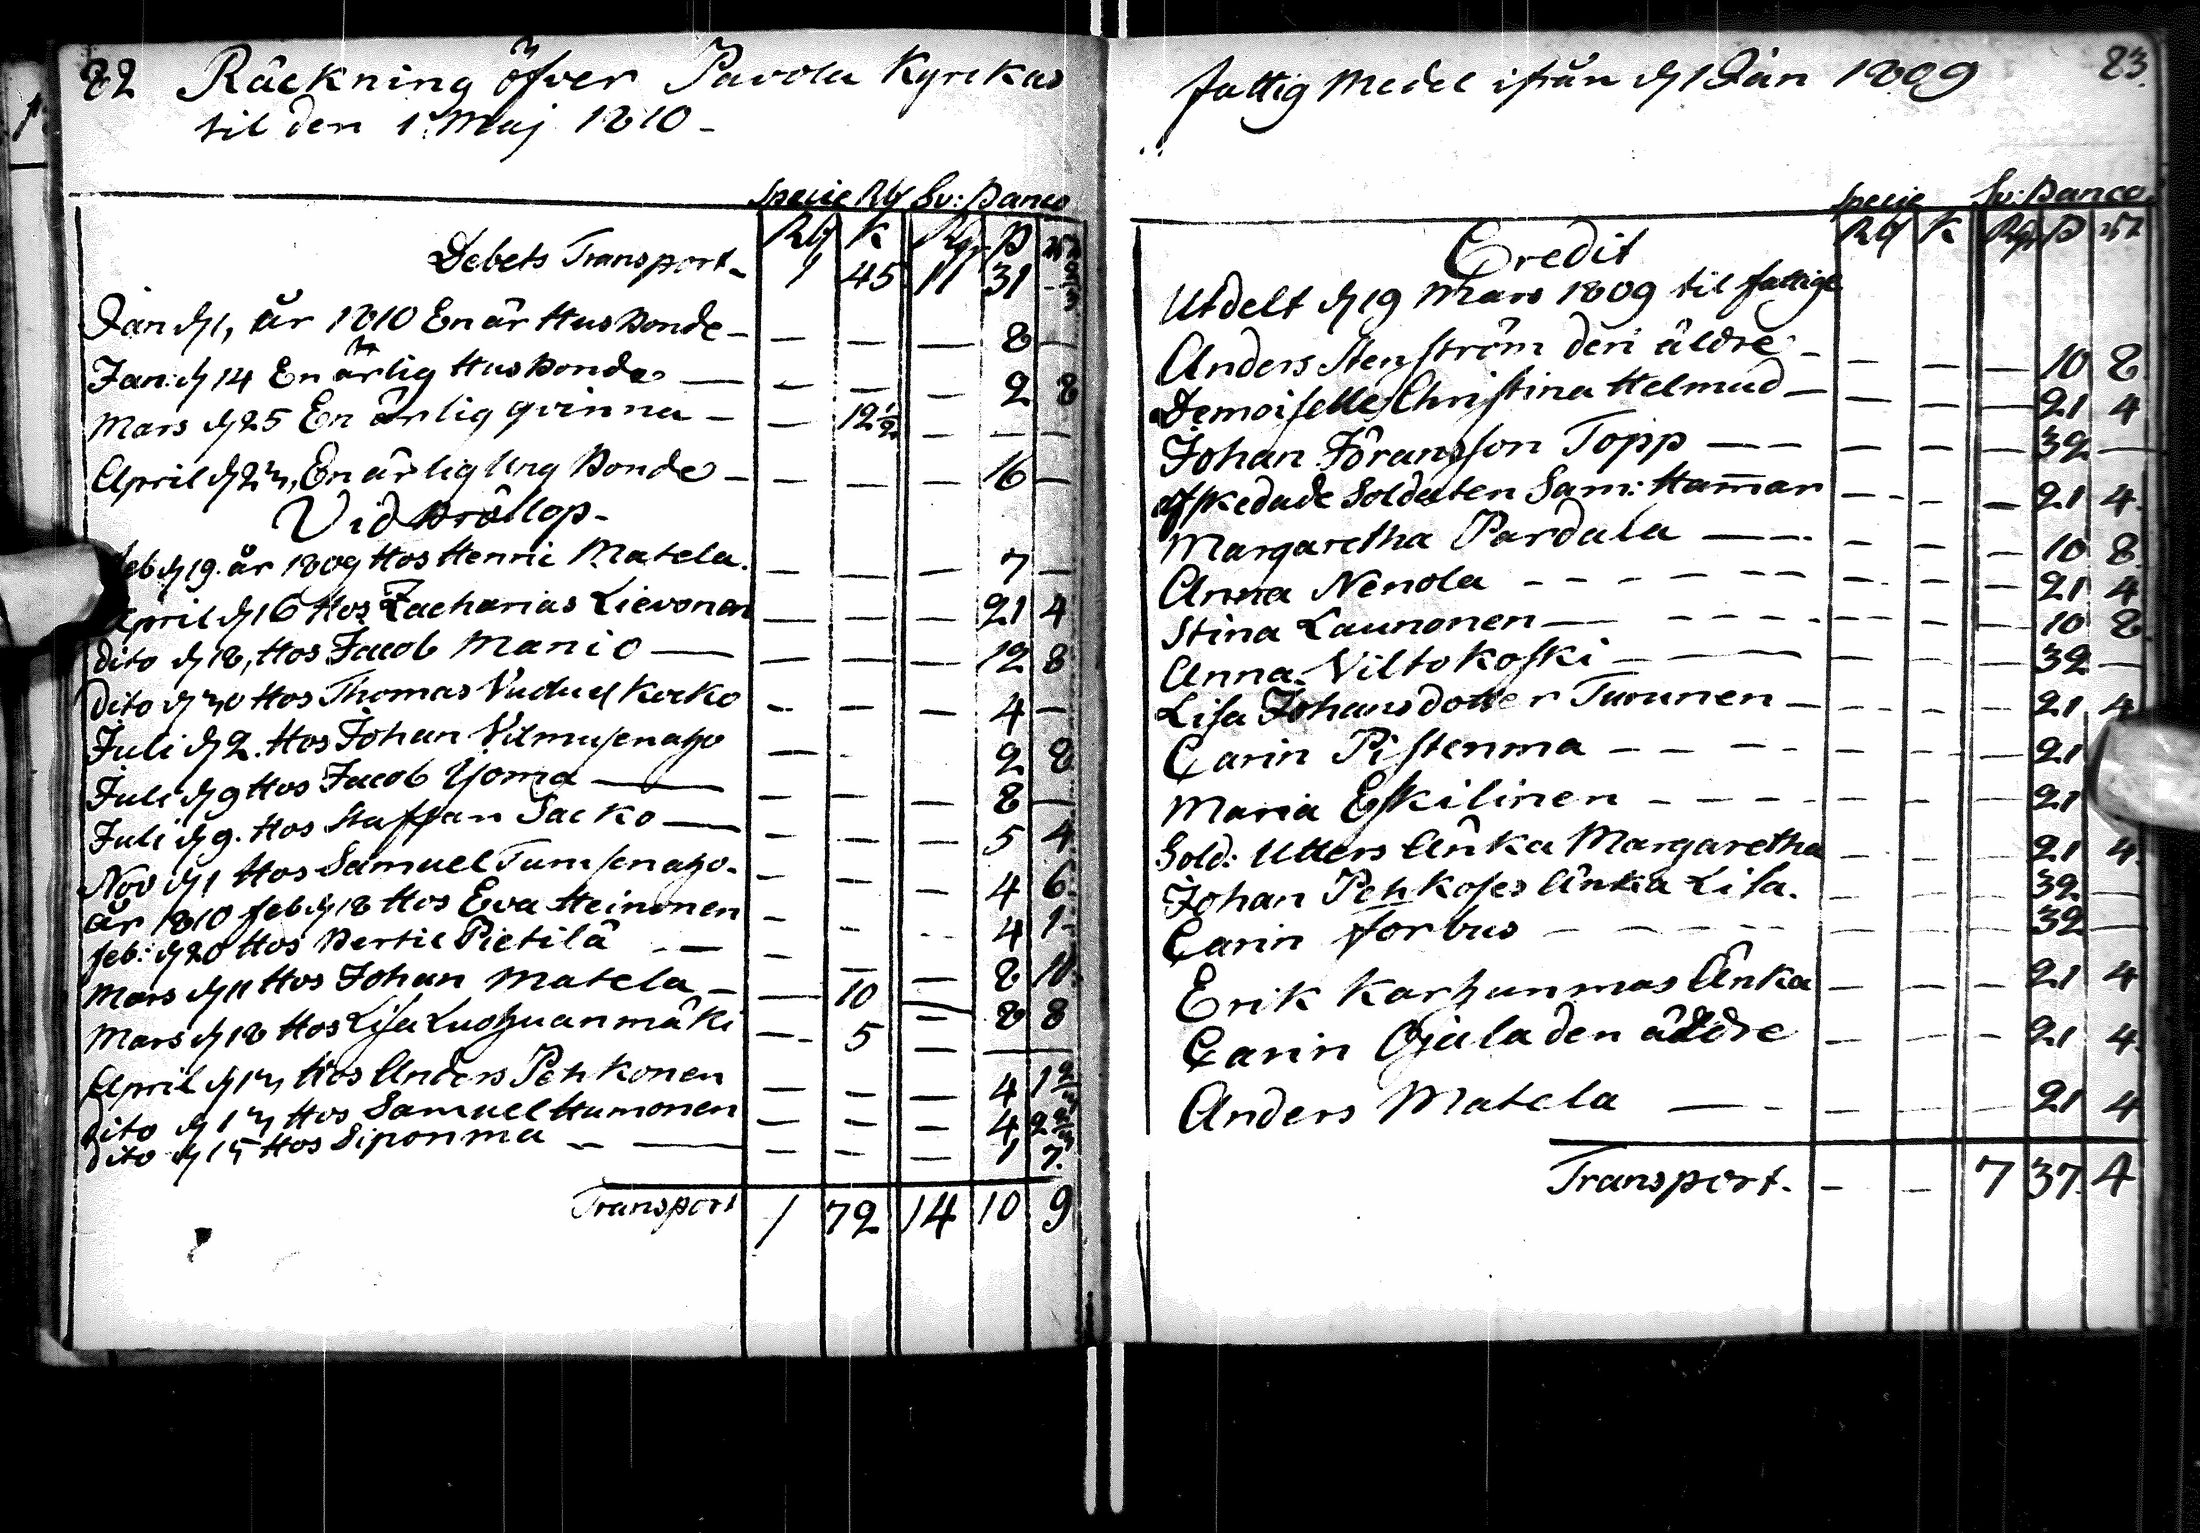 82 Räckning öfver Pavola Kyrckas
til den 1 Maj 1810 -
Specie Rbl Sv: Banco
Rbl K Rdr ß
Debets Transport - 1 45 11 31 - 2/3
Jan d 1, år 1810 En är Hus Bonde - — — — 8 —
Jan: d 14 En ärlig Hus Bonde — - — - 2 8
Mars d 25 En ärlig qvinna - — 12 1/2 - — —
April d 23, En ärlig Ung Bonde - — — — 16 —
Vid Bröllop -
Feb d 19. år 1809 Hos Henric Matela. — — — 7 —
April d 16 Hos Zacharias Lievonen — — — 21 4
dito d 18, Hos Jacob Manio — — — — 12 8
dito d 30 Hos Thomas - — — 4 —
Juli d 2. Hos Johan Vilmusenaho — - 2 8
Juli d 9 Hos Jacob Yoma — — — — 8 —
Juli d 9. Hos Staffan Sacko — — — — 5 4
Nov d 1 Hos Samuel Tumsenaho - — — — 4 6
år 1810 feb d 18 Hos Eva Heinonen - - - 4 1
feb: d 20 Hos Bertil Pietilä — - — — 8 10
Mars d 11 Hos Johan Matela - — 10 — 8 8
Mars d 18 Hos Lisa Luohuanmäki — 5 — —
April d 13 Hos Anders Pehkonen — — — 4 1 2/3
dito d 13 Hos Samuel Humonen — — — 4 2 2/3
dito d 15 Hos Siponma — — — — 1 7
Transport 1 72 14 10 9
fattig Medel ifrån d 1 Jan 1809 83.
Specie Sv: Banco
Rbl K Rdr ß
Credit
Utdelt d 19 Mars 1809 til fattige
Anders Stenström den äldre - — — — 10 8
Demoiselle Christina Helmud — — — — 21 4
Johan Göransson Topp — — — — — 32 —
afskedade Soldaten Sam: Ham̅ar — - — 21 4
Margaretha Pardala — - - — — 10 8
Anna Nenola - - - — — — - — 21 4
Stina Launonen — - - - - - - — 10 8
Anna Viltokoski - - — — — — 32 —
Lisa Johansdotter Turunen — - - — 21 4
Carin Pistenma — - - - - - - 21
Maria Eskilinen - - - - - - - 21
Sold: Utters Änka Margaretha — - — 21 4
Johan Pehkoses Änka Lisa. - - - 32 —
Carin Forbus - - - - - - 32 —
Erik Karhunmas Änka — — — 21 4
Carin Ojala den äldre — — - 21 4
Anders Matela — - - - - - 21 4
Transport. - — 7 37 4